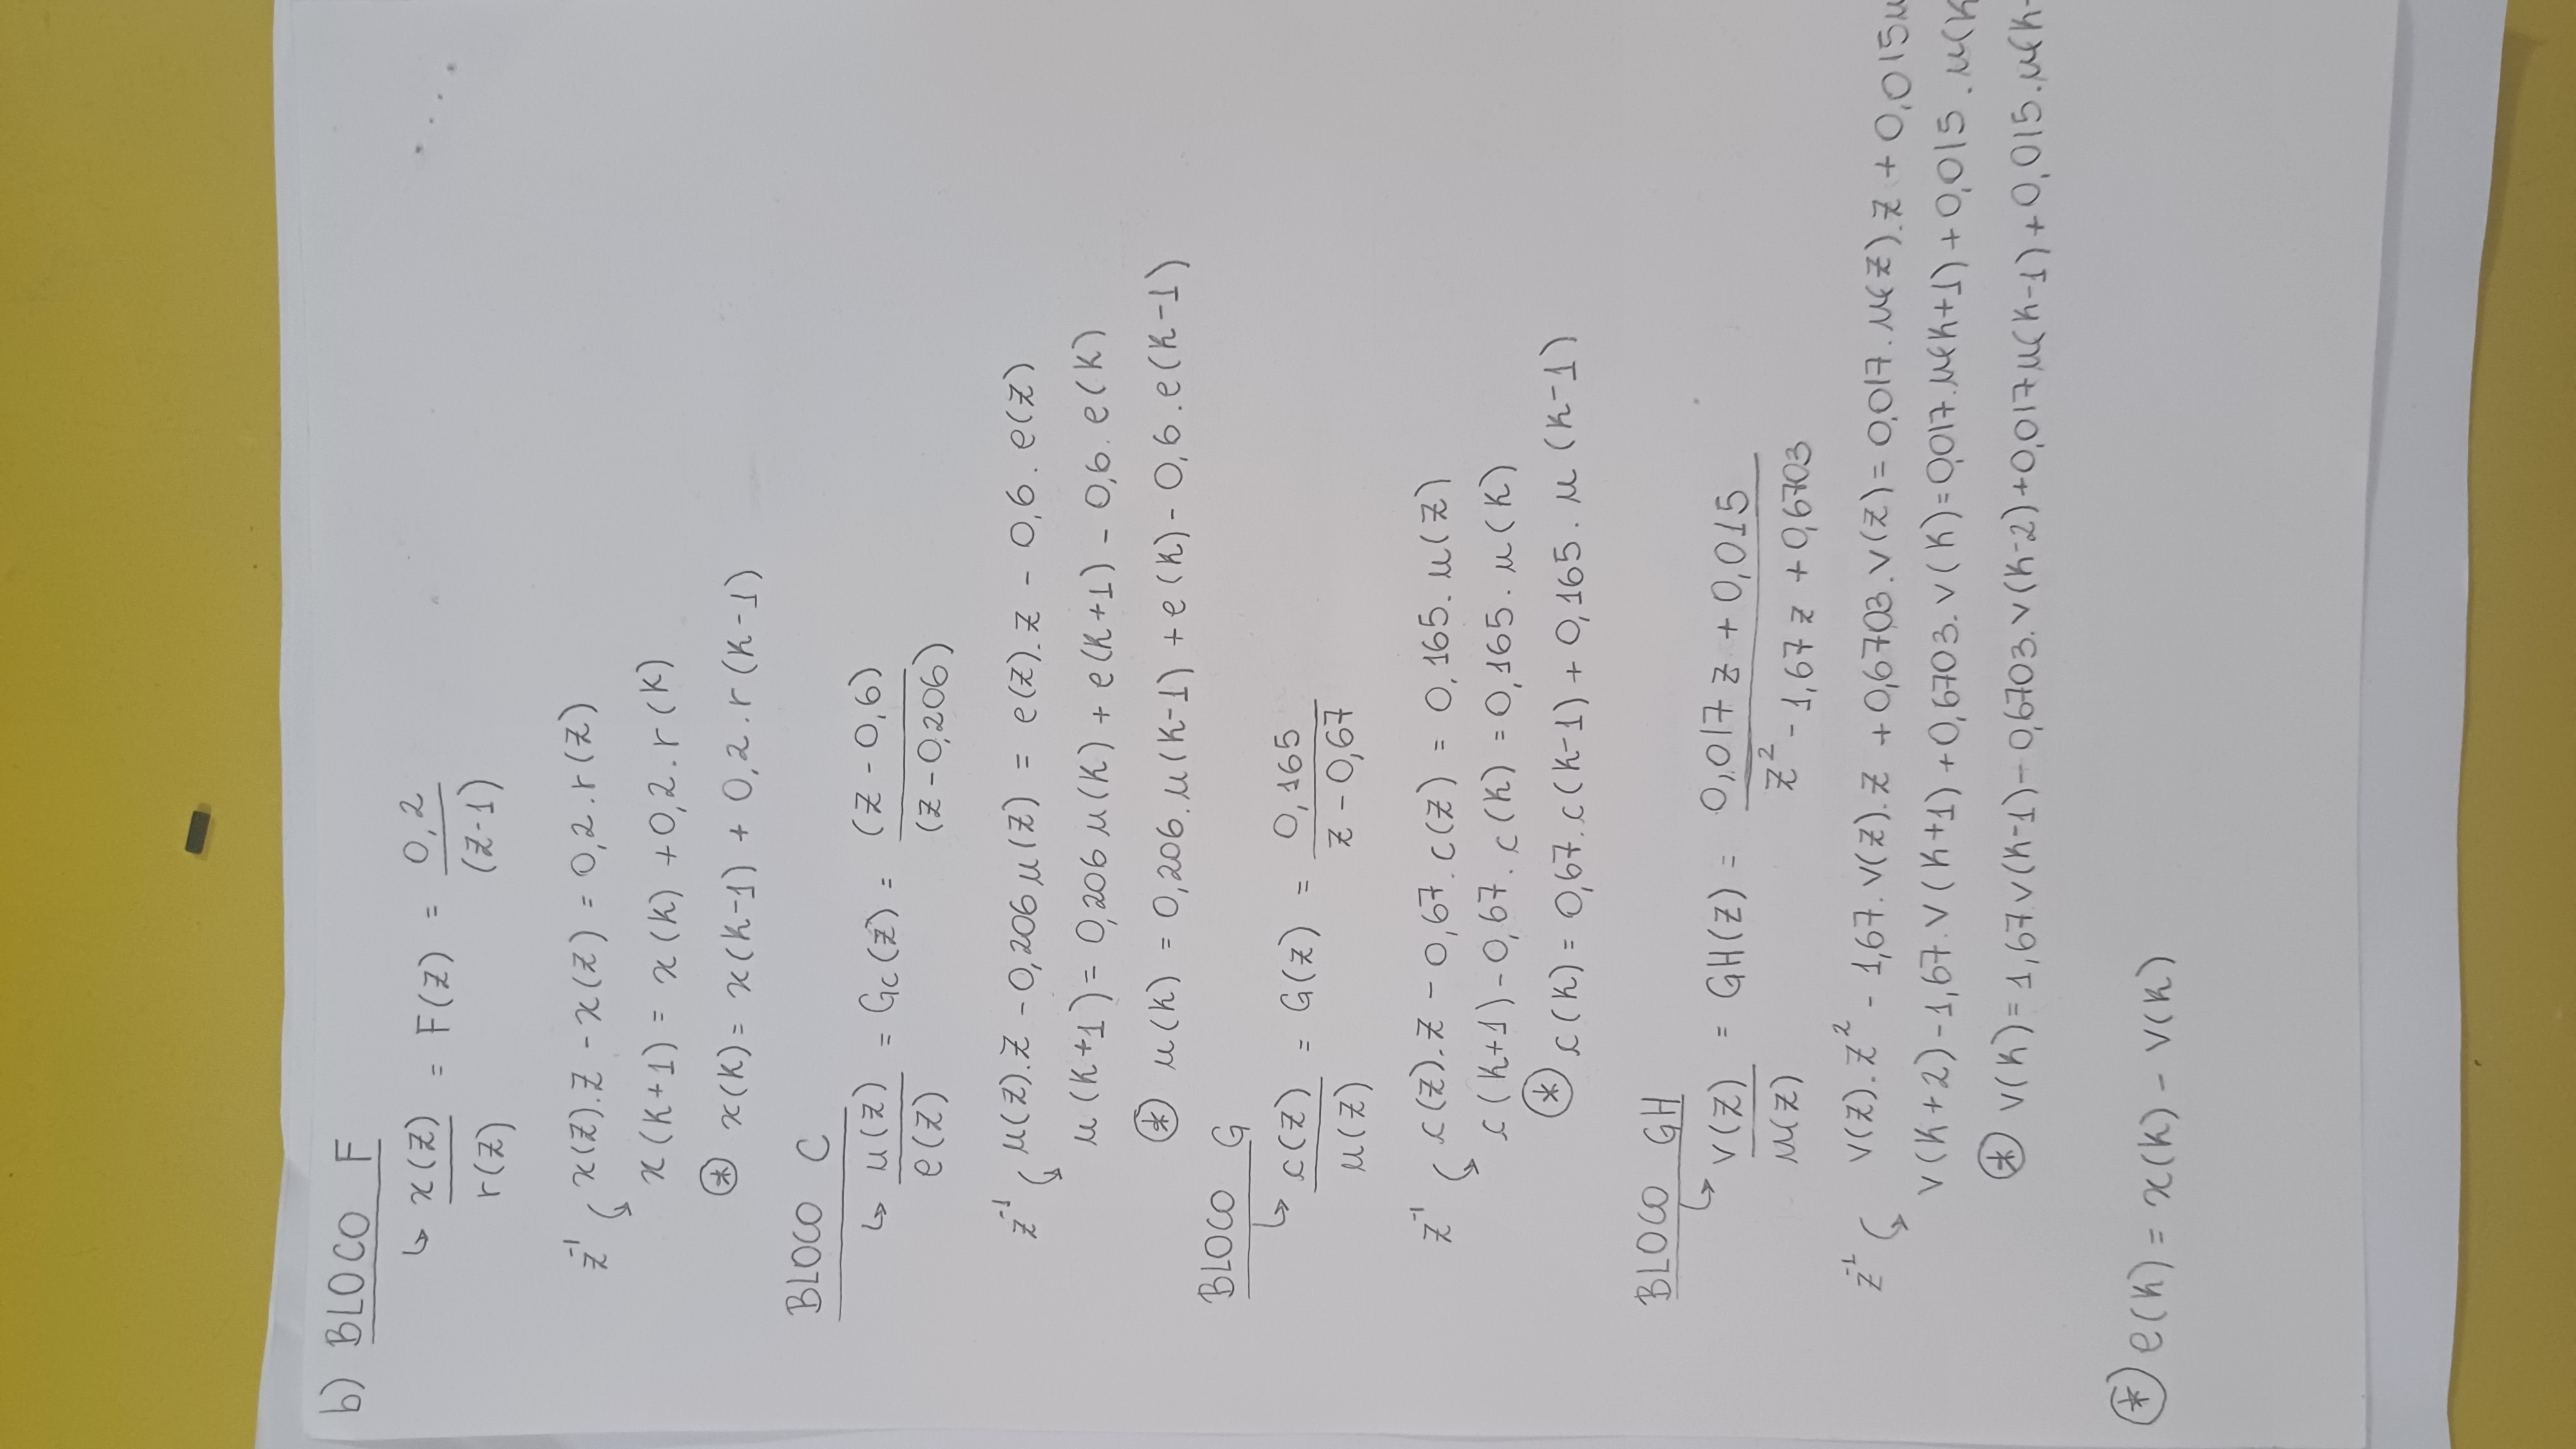 b) BLOCO F
↳ x(z)/r(z) = F(z) = 0,2/(z-1)
z⁻¹ x(z).z - x(z) = 0,2.r(z)
x(k+1) = x(k) + 0,2.r(k)
⊛ x(k) = x(k-1) + 0,2.r(k-1)
BLOCO C
↳ u(z)/e(z) = Gc(z) = (z - 0,6)/(z - 0,206)
z⁻¹ u(z).z - 0,206 u(z) = e(z).z - 0,6.e(z)
u(k+1) = 0,206 u(k) + e(k+1) - 0,6.e(k)
⊛ u(k) = 0,206.u(k-1) + e(k) - 0,6.e(k-1)
BLOCO G
↳ c(z)/u(z) = G(z) = 0,165/z - 0,67
z⁻¹ c(z).z - 0,67.c(z) = 0,165.u(z)
c(k+1) - 0,67.c(k) = 0,165.u(k)
⊛ c(k) = 0,67.c(k-1) + 0,165.u(k-1)
BLOCO GH
↳ v(z)/u(z) = GH(z) = 0,017 z + 0,015/z² - 1,67 z + 0,6703
z⁻¹ v(z).z² - 1,67.v(z).z + 0,6703.v(z) = 0,017.u(z).z + 0,015u
v(k+2) - 1,67.v(k+1) + 0,6703.v(k) = 0,017.u(k+1) + 0,015.u(k
⊛ v(k) = 1,67 v(k-1) - 0,6703.v(k-2) + 0,017 u(k-1) + 0,015.u(k-
⊛ e(k) = x(k) - v(k)